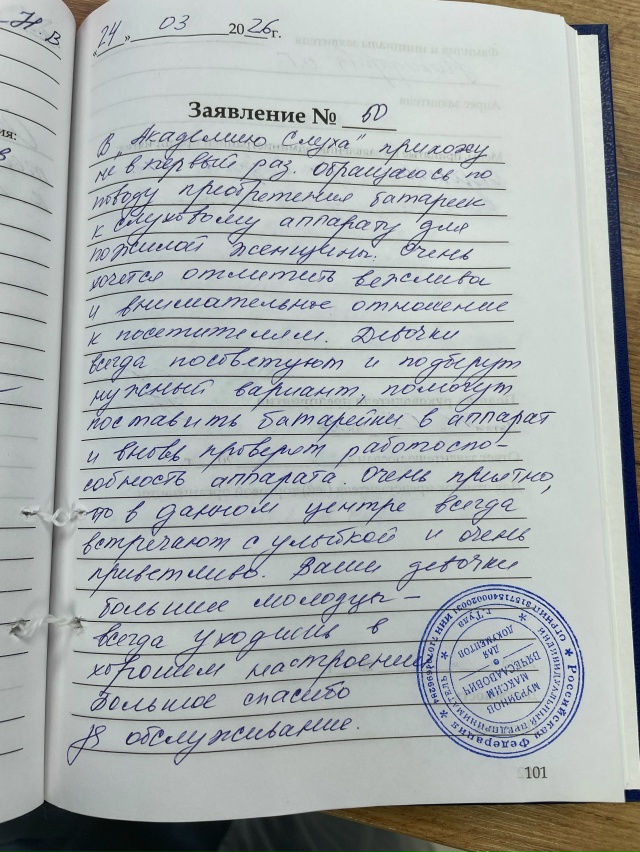 Н.В
ия:
в
"24" 03 2026г.
Заявление № 50
В "Академию Слуха" прихожу
не в первый раз. Обращаюсь по
поводу приобретения батареек
к слуховому аппарату для
пожилой женщины. Очень
хочется отметить вежливое
и внимательное отношение
к посетителям. Девочки
всегда посоветуют и подберут
нужный вариант, помогут
поставить батарейки в аппарат
и вновь проверят работоспо-
собность аппарата. Очень приятно,
что в данном центре всегда
встречают с улыбкой и очень
приветливо. Ваши девочки
большие молодцы –
всегда уходишь в
хорошем настроении
Большое спасибо
за обслуживание.
Российская Федерация
ИНДИВИДУАЛЬНЫЙ ПРЕДПРИНИМАТЕЛЬ
г. Тула
МУРЗИНОВ
МАКСИМ
ВЯЧЕСЛАВОВИЧ
ДЛЯ
ДОКУМЕНТОВ
101